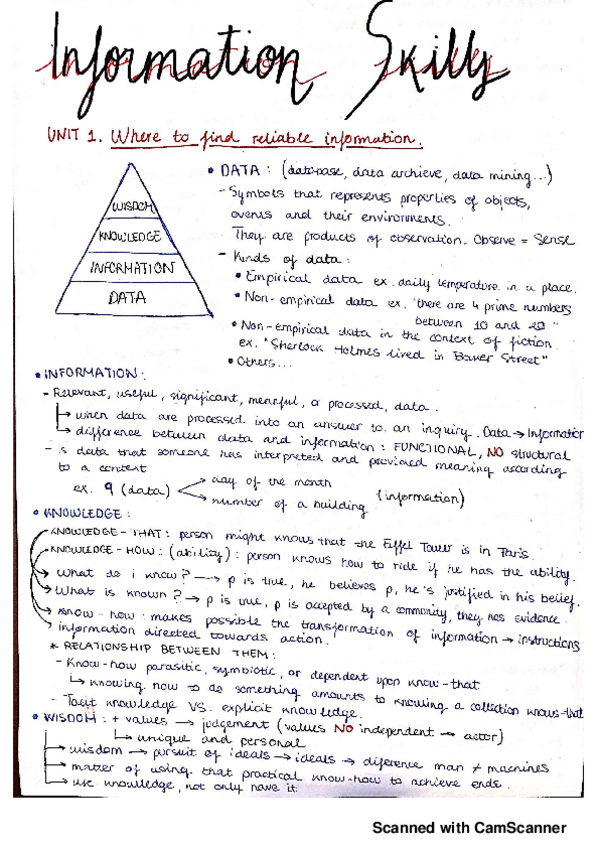 Information Skills
UNIT 1. Where to find reliable information.
WISDOM
KNOWLEDGE
INFORMATION
DATA
• DATA: (database, data archieve, data mining...)
- Symbols that represents properties of objects,
events and their environments.
- They are products of observation. Observe = Sense
- Kinds of data:
• Empirical data ex. daily temperature in a place.
• Non-empirical data ex. "there are 4 prime numbers
between 10 and 20"
• Non-empirical data in the context of fiction.
ex. "Sherlock Holmes lived in Baker Street"
• Others...
• INFORMATION:
- Relevant, useful, significant, meanful, or processed, data.
→ when data are processed into an answer to an inquiry. Data → Information
→ difference between data and information: FUNCTIONAL, NO structural
- is data that someone has interpreted and provided meaning according
to a context
ex. 9 (data) → day of the month
→ number of a building (information)
• KNOWLEDGE:
KNOWLEDGE-THAT: person might knows that the Eiffel Tower is in Paris.
KNOWLEDGE-HOW: (ability): person knows how to ride if he has the ability.
→ What do i know? → p is true, he believes p, he's justified in his belief.
→ What is known? → p is true, p is accepted by a community, they has evidence.
→ Know-how: makes possible the transformation of information → instructions
→ information directed towards action.
* RELATIONSHIP BETWEEN THEM:
- Know-how parasitic, symbiotic, or dependent upon know-that
→ knowing how to do something amounts to knowing a collection knows-that
- Tacit knowledge VS. explicit knowledge.
• WISDOM: + values → judgement (values NO independent → actor)
→ unique and personal
→ wisdom → pursuit of ideals → ideals → diference man ≠ machines
→ matter of using that practical know-how to achieve ends.
→ use knowledge, not only have it.
Scanned with CamScanner